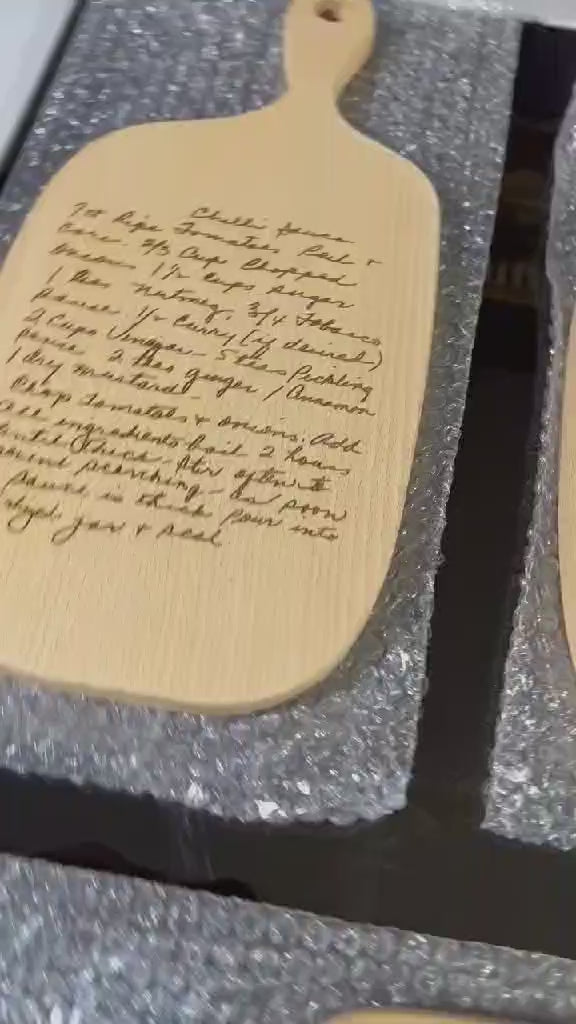 Chilli Sauce
Ripe Tomatoes Peel +
Core. 2/3 Cup Chopped
Onions 1½ Cups Sugar
1 teas Nutmeg, 3/4 Tobasco
Sauce 1/2 Curry (if desired)
2 Cups Vinegar - 5 teas Pickling
2 teas ginger / Cinnamon
1 dry mustard -
Chop tomatoes + onions. Add
all ingredients boil 2 hours
until thick. Stir often to
scorching - as soon
sauce is thick pour into
jar + seal